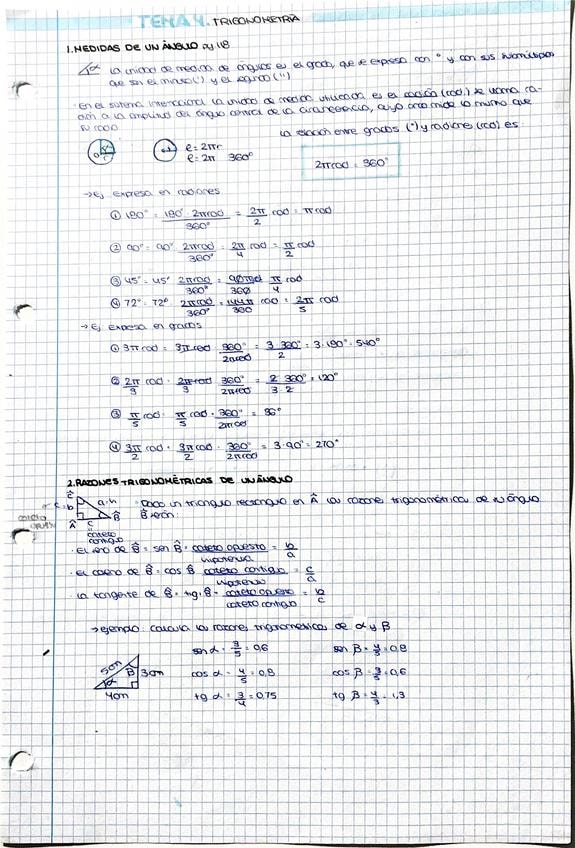 TEMA 4. TRIGONOMETRÍA
1. MEDIDAS DE UN ÁNGULO pg 118
α La unidad de medida de ángulos es el grado, que se expresa con ° y con sus submúltiplos
que son el minuto (') y el segundo ('')
En el sistema internacional la unidad de medida utilizada es el radián (rad). Se llama ra-
dián a la amplitud del ángulo central de la circunferencia, cuyo arco mide lo mismo que
su radio.
La relación entre grados (°) y radianes (rad) es:
l = 2πr
l = 2π 360°
2π rad = 360°
→ Ej. Expresa en radianes
① 180° = 180° · 2π rad / 360° = 2π/2 rad = π rad
② 90° = 90° · 2π rad / 360° = 2π/4 rad = π/2 rad
③ 45° = 45° 2π rad / 360° = 90π rad / 360 π/4 rad
④ 72° = 72° 2π rad / 360° = 144π / 360 rad = 2π/5 rad
→ Ej. Expresa en grados
① 3π rad = 3π rad · 360° / 2π rad = 3 · 360° / 2 = 3 · 180° = 540°
② 2π/3 rad = 2π rad / 3 · 360° / 2π rad = 2 · 360° / 3 · 2 = 120°
③ π/5 rad = π/5 rad · 360° / 2π rad = 36°
④ 3π/2 rad = 3π/2 rad · 360° / 2π rad = 3 · 90° = 270°
2. RAZONES TRIGONOMÉTRICAS DE UN ÁNGULO
Ĉ b a = h Â c B̂
cateto contiguo
Dado un triángulo rectángulo en Â las razones trigonométricas de su ángulo
B̂ serán:
· El seno de B̂ = sen B̂ = cateto opuesto / hipotenusa = b/a
· El coseno de B̂ = cos B̂ = cateto contiguo / hipotenusa = c/a
· La tangente de B̂ = tg B̂ = cateto opuesto / cateto contiguo = b/c
→ ejemplo: calcula las razones trigonométricas de α y β
5cm 3cm 4cm α β
sen α = 3/5 = 0,6 sen β = 4/5 = 0,8
cos α = 4/5 = 0,8 cos β = 3/5 = 0,6
tg α = 3/4 = 0,75 tg β = 4/3 = 1,3